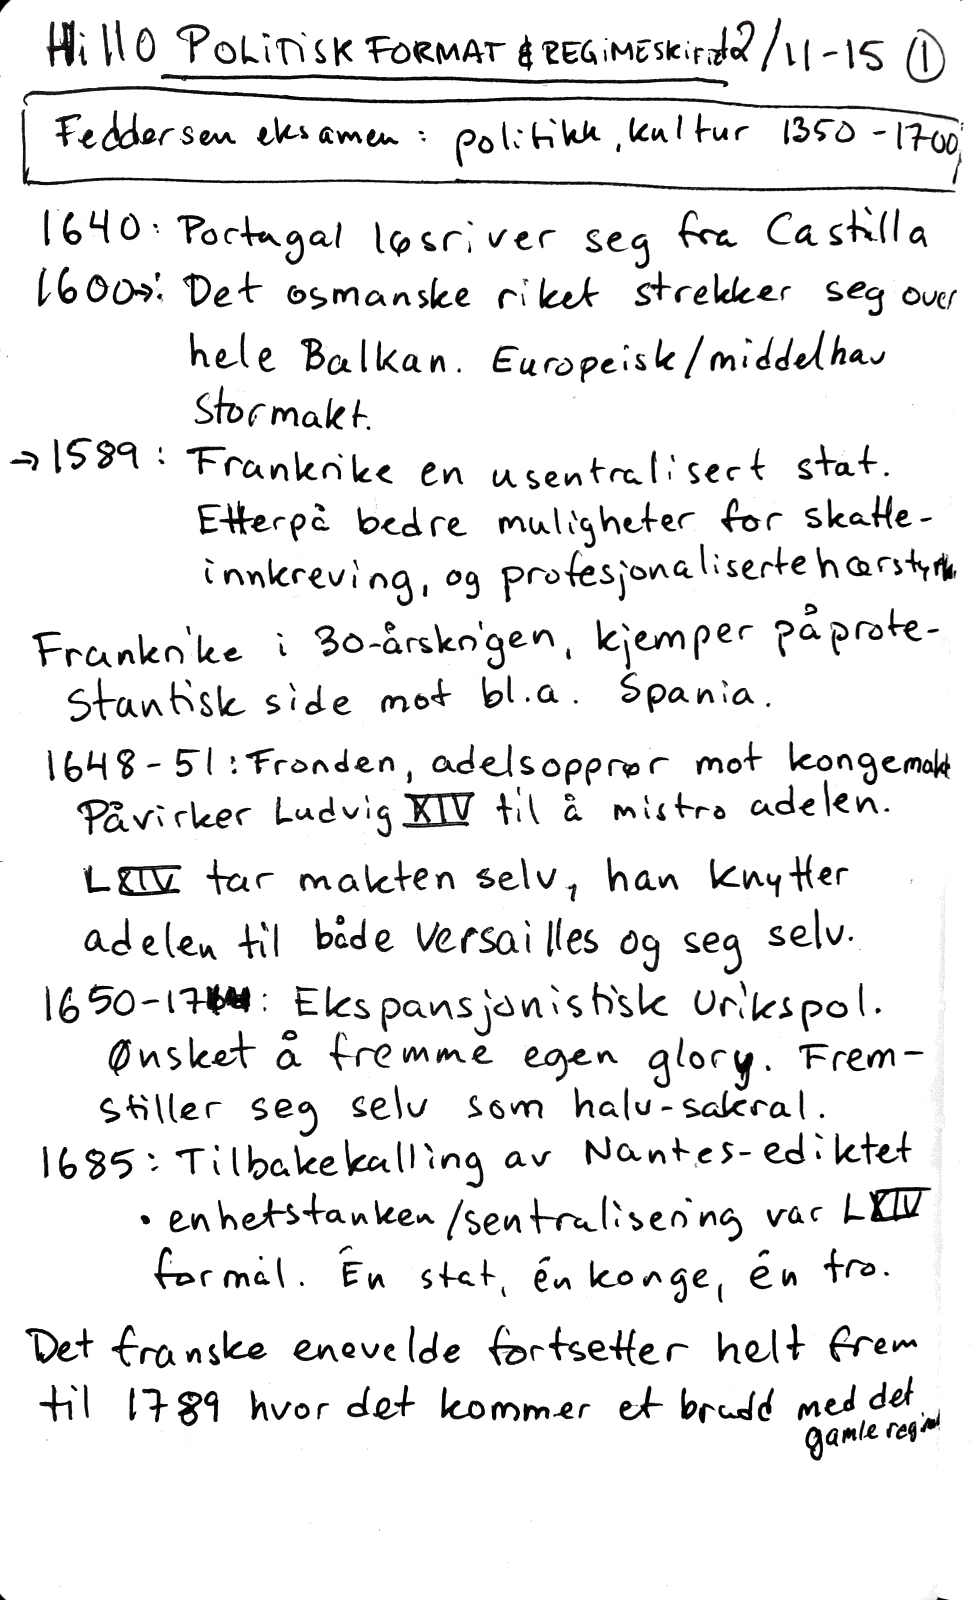 Hi 110 POLITISK FORMAT & REGIMESKIFTE 12/11-15 ①
Feddersen eksamen: politikk, kultur 1350-1700
1640: Portugal løsriver seg fra Castilla
1600→: Det osmanske riket strekker seg over
hele Balkan. Europeisk/middelhav
stormakt.
→1589: Frankrike en usentralisert stat.
Etterpå bedre muligheter for skatte-
innkreving, og profesjonaliserte hærstyrk.
Frankrike i 30-årskrigen, kjemper på prote-
stantisk side mot bl.a. Spania.
1648-51: Fronden, adelsopprør mot kongemakt
Påvirker Ludvig XIV til å mistro adelen.
LXIV tar makten selv, han knytter
adelen til både Versailles og seg selv.
1650-17: Ekspansjonistisk urikspol.
Ønsket å fremme egen glory. Frem-
stiller seg selv som halv-sakral.
1685: Tilbakekalling av Nantes-ediktet
• enhetstanken/sentralisering var LXIV
formål. Én stat, én konge, én tro.
Det franske enevelde fortsetter helt frem
til 1789 hvor det kommer et brudd med det
gamle regimet